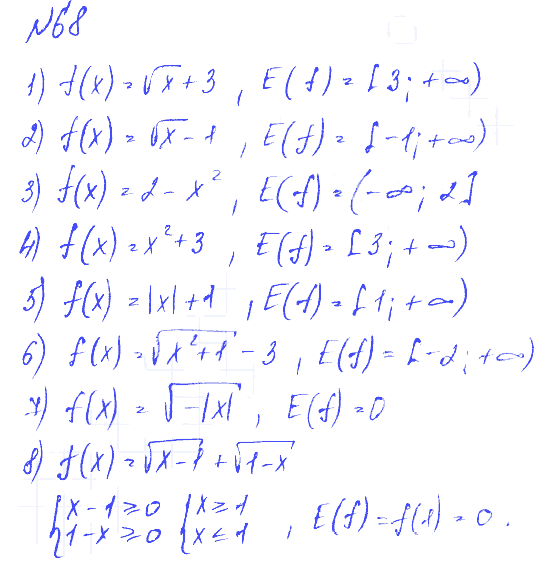 №68
1) f(x) = √x + 3, E(f) = [3; +∞)
2) f(x) = √x - 1, E(f) = [-1; +∞)
3) f(x) = 2 - x², E(f) = (-∞; 2]
4) f(x) = x² + 3, E(f) = [3; +∞)
5) f(x) = |x| + 1, E(f) = [1; +∞)
6) f(x) = √(x² + 1) - 3, E(f) = [-2; +∞)
7) f(x) = √(-|x|), E(f) = 0
8) f(x) = √(x - 1) + √(1 - x)
{x - 1 ≥ 0 {x ≥ 1
{1 - x ≥ 0 {x ≤ 1, E(f) = f(1) = 0.